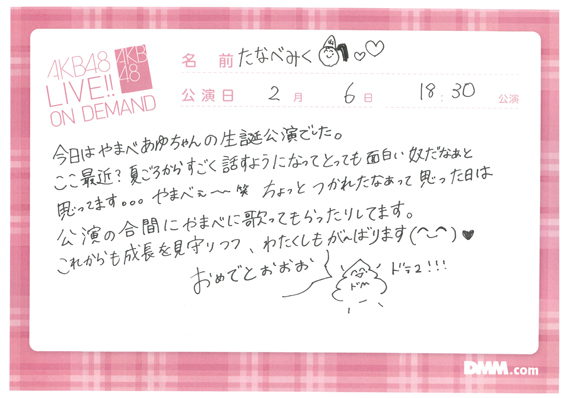 AKB48
LIVE!!
ON DEMAND
AKB
48
名 前 たなべみく
公演日 2月 6日 18:30 公演
今日はやまべあゆちゃんの生誕公演でした。
ここ最近?夏ごろからすごく話すようになってとっても面白い奴だなぁと
思ってます。。。やまべぇ〜〜笑 ちょっとつかれたなぁって思った日は
公演の合間にやまべに歌ってもらったりしてます。
これからも成長を見守りつつ、わたくしもがんばります(^‿^)♥
おめでとおおお
DMM.com